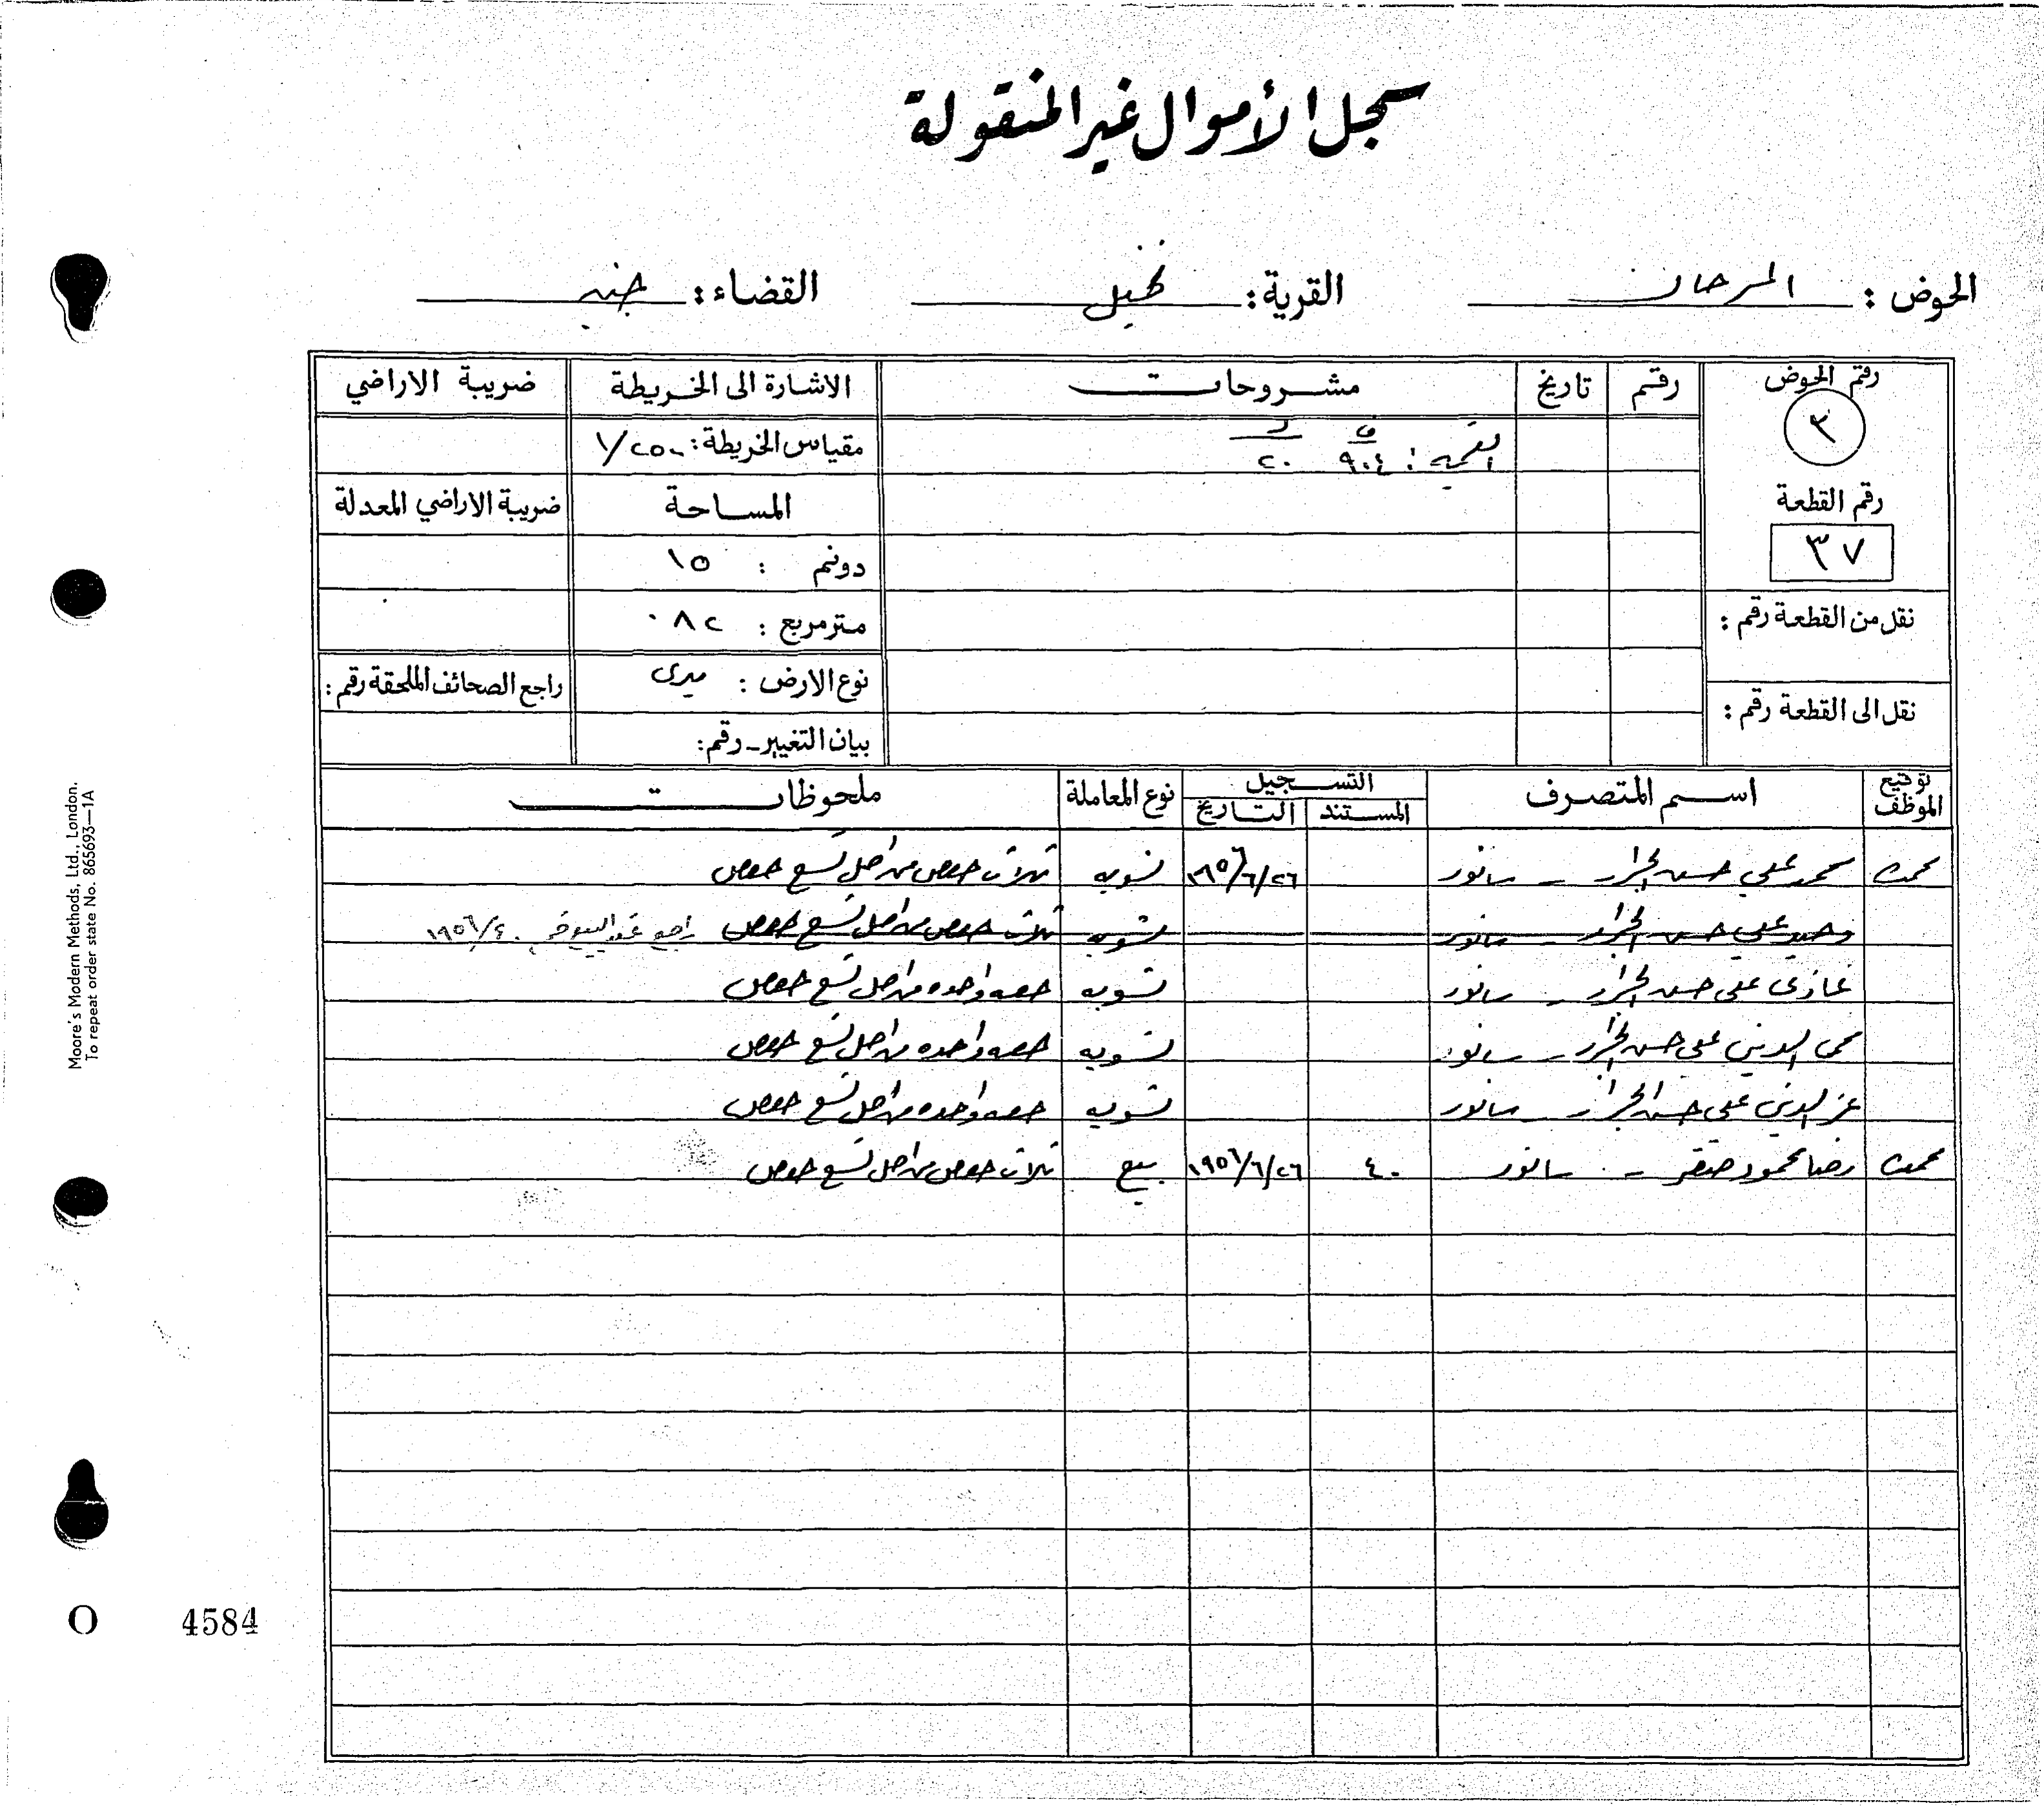 سجل الأموال غير المنقولة
الحوض : السرحان القرية : نخيل القضاء : جنين
رقم الحوض رقم تاريخ مشروحات الاشارة الى الخريطة ضريبة الاراضي
٣
القيمة : ف ٩٠٤ د ٢٠ مقياس الخريطة : ١/٢٥٠٠
رقم القطعة المساحة ضريبة الاراضي المعدلة
٣٧ دونم : ١٥
نقل من القطعة رقم : متر مربع : ٠٨٢
نوع الارض : ميري راجع الصحائف الملحقة رقم :
نقل الى القطعة رقم : بيان التغيير - رقم :
توقيع الموظف اسم المتصرف التسجيل المستند التاريخ نوع المعاملة ملحوظات
محمد علي حسن الجرار - سانور ١٩٥٦/٦/٢٦ تسويه ثلاث حصص من اصل تسع حصص
وحيد علي حسن الجرار - سانور تسويه ثلاث حصص من اصل تسع حصص راجع عقد البيع رقم ١٩٥٦/٤٠
غازي علي حسن الجرار - سانور تسويه حصه واحده من اصل تسع حصص
محي الدين علي حسن الجرار - سانور تسويه حصه واحده من اصل تسع حصص
عز الدين علي حسن الجرار - سانور تسويه حصه واحده من اصل تسع حصص
رضا محمود صقر - سانور ٤٠ ١٩٥٦/٦/٢٦ بيع ثلاث حصص من اصل تسع حصص
Moore's Modern Methods, Ltd., London.
To repeat order state No. 865693—1A
O 4584